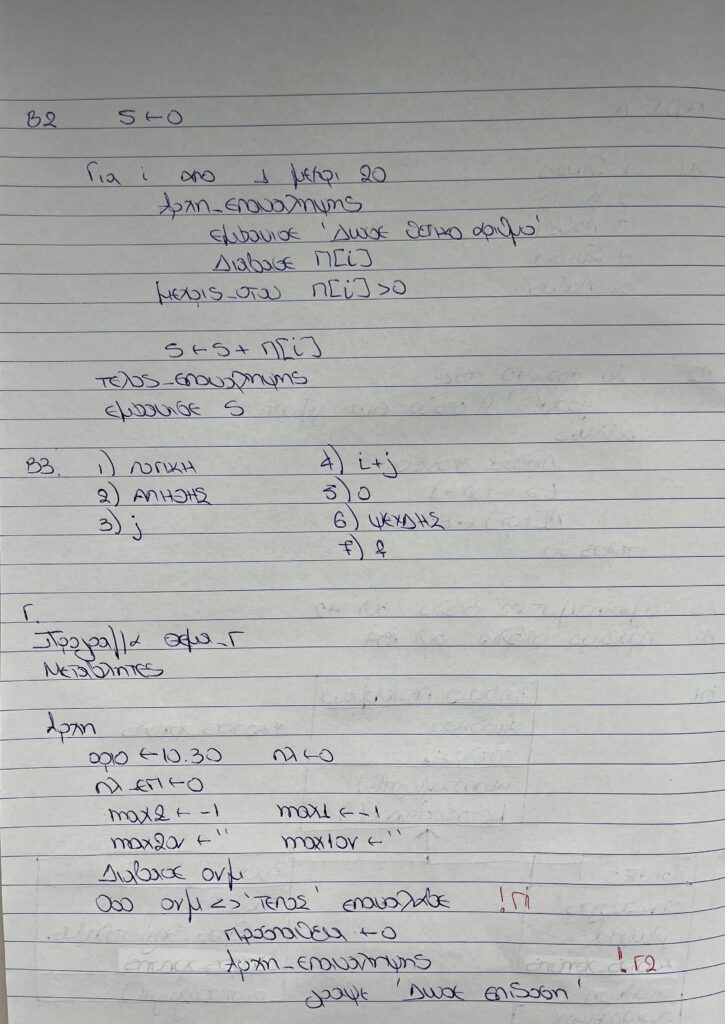 Β2 S ← 0
Για i απο 1 μεχρι 20
Αρχη_επαναληψης
εμφανισε 'Δωσε θετικο αριθμο'
Διαβασε Π[i]
μεχρις_οτου Π[i] > 0
S ← S + Π[i]
τελος_επαναληψης
εμφανισε S
Β3. 1) ΛΟΓΙΚΗ 4) i+j
2) ΑΛΗΘΗΣ 5) 0
3) j 6) ΨΕΥΔΗΣ
7)
Γ.
Προγραμμα θεμα_Γ
Μεταβλητες
Αρχη
οριο ← 10.30 πλ ← 0
πλ_επ ← 0
max2 ← -1 max1 ← -1
max2ον ← '' max1ον ← ''
Διαβασε ονμ
Οσο ονμ <> 'ΤΕΛΟΣ' επαναλαβε !Γ1
προσπαθεια ← 0
Αρχη_επαναληψης !Γ2
γραψε 'Δωσε επιδοση'